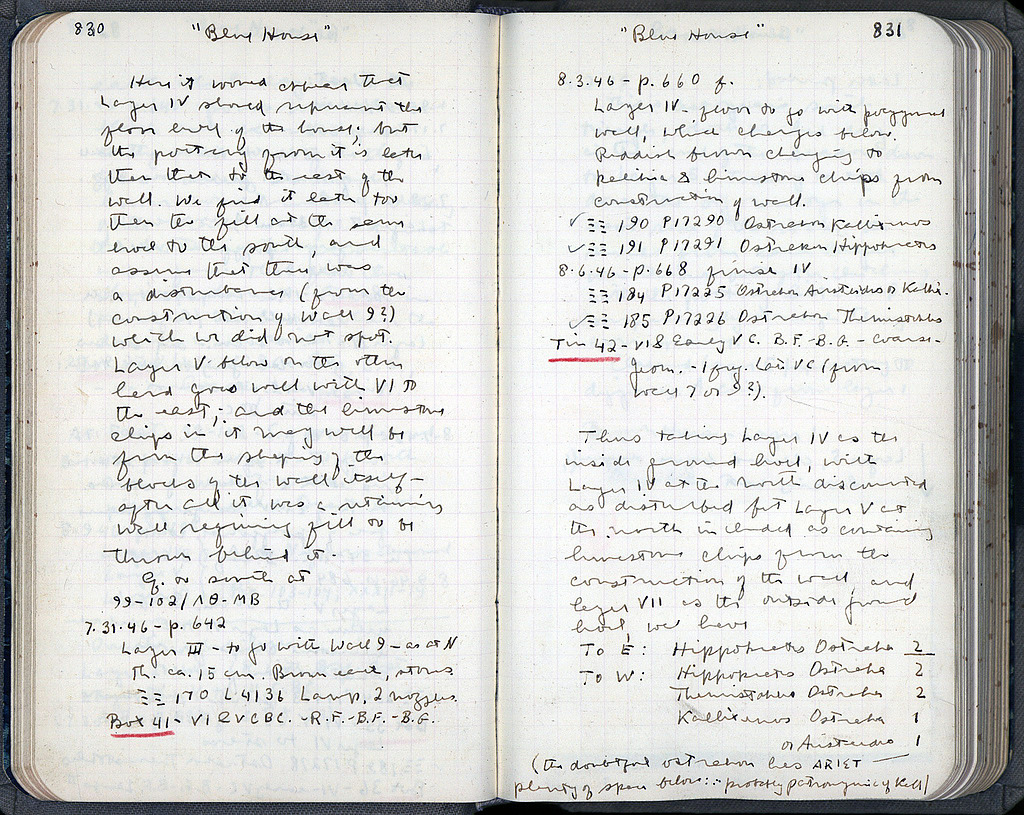 830
"Blue House"
Here it would appear that
Layer IV should represent the
floor level of the house; but
the pottery from it is later
than that to the east of the
wall. We find it later too
than the fill at the same
level to the south, and
assume that there was
a disturbance (from the
construction of Wall 9?)
which we did not spot.
Layer V below on the other
hand goes well with VI to
the east; and the limestone
chips in it may well be
from the shaping of the
blocks of the wall itself –
after all it was a retaining
wall requiring fill to be
thrown behind it.
G. to south at
99-102/ΛΘ-ΜΒ
7.31.46 – p. 642
Layer III – to go with Wall 9 – as at N
Th. ca. 15 cm. Brown earth, stones
ΞΞ 170 L 4136 Lamp, 2 nozzles.
Box 41 – VI & V C BC. – R.F. – B.F. – B.G.
"Blue House"
831
8.3.46 – p. 660 f.
Layer IV. floor to go with polygonal
wall, which changes below.
Reddish brown changing to
kalikia & limestone chips from
construction of wall.
✓ ΞΞ 190 P17290 Ostrakon Kallixenos
✓ ΞΞ 191 P17291 Ostrakon Hippokrates
8.6.46 – p. 668 finish IV
ΞΞ 184 P17225 Ostrakon Aristeides or Kallix.
✓ ΞΞ 185 P17226 Ostrakon Themistokles
Tin 42 – VI & Early V C. B.F. – B.G. – Coarse –
Geom. – 1 frg. Late V C (from
Wall 7 or 9?).
Thus taking Layer IV as the
inside ground level, with
Layer IV at the north discounted
as disturbed but Layer V at
the north included as containing
limestone chips from the
construction of the wall, and
layer VII as the outside ground
level, we have
To E: Hippokrates Ostraka 2
To W: Hippokrates Ostraka 2
Themistokles Ostraka 2
Kallixenos Ostraka 1
or Aristeides 1
(the doubtful ostrakon has ARIST —
plenty of space below ∴ probably patronymic of Kall)